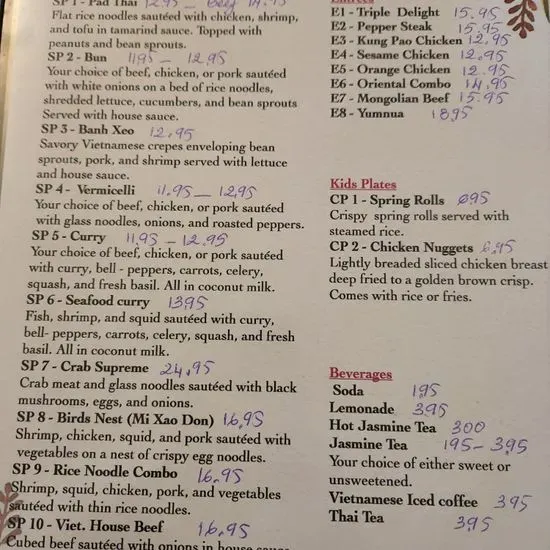 SP 1 - Pad Thai 12.95 - Beef 14.95
Flat rice noodles sautéed with chicken, shrimp,
and tofu in tamarind sauce. Topped with
peanuts and bean sprouts.
SP 2 - Bun 11.95 - 12.95
Your choice of beef, chicken, or pork sautéed
with white onions on a bed of rice noodles,
shredded lettuce, cucumbers, and bean sprouts
Served with house sauce.
SP 3 - Banh Xeo 12.95
Savory Vietnamese crepes enveloping bean
sprouts, pork, and shrimp served with lettuce
and house sauce.
SP 4 - Vermicelli 11.95 - 12.95
Your choice of beef, chicken, or pork sautéed
with glass noodles, onions, and roasted peppers.
SP 5 - Curry 11.95 - 12.95
Your choice of beef, chicken, or pork sautéed
with curry, bell - peppers, carrots, celery,
squash, and fresh basil. All in coconut milk.
SP 6 - Seafood curry 13.95
Fish, shrimp, and squid sautéed with curry,
bell- peppers, carrots, celery, squash, and fresh
basil. All in coconut milk.
SP 7 - Crab Supreme 24.95
Crab meat and glass noodles sautéed with black
mushrooms, eggs, and onions.
SP 8 - Birds Nest (Mi Xao Don) 16.95
Shrimp, chicken, squid, and pork sautéed with
vegetables on a nest of crispy egg noodles.
SP 9 - Rice Noodle Combo 16.95
Shrimp, squid, chicken, pork, and vegetables
sautéed with thin rice noodles.
SP 10 - Viet. House Beef 16.95
Cubed beef sautéed with onions in house sauce
Entrees
E1 - Triple Delight 15.95
E2 - Pepper Steak 15.95
E3 - Kung Pao Chicken 12.95
E4 - Sesame Chicken 12.95
E5 - Orange Chicken 12.95
E6 - Oriental Combo 14.95
E7 - Mongolian Beef 15.95
E8 - Yumnua 1895
Kids Plates
CP 1 - Spring Rolls 695
Crispy spring rolls served with
steamed rice.
CP 2 - Chicken Nuggets 6.95
Lightly breaded sliced chicken breast
deep fried to a golden brown crisp.
Comes with rice or fries.
Beverages
Soda 195
Lemonade 395
Hot Jasmine Tea 300
Jasmine Tea 195 - 3.95
Your choice of either sweet or
unsweetened.
Vietnamese Iced coffee 395
Thai Tea 395